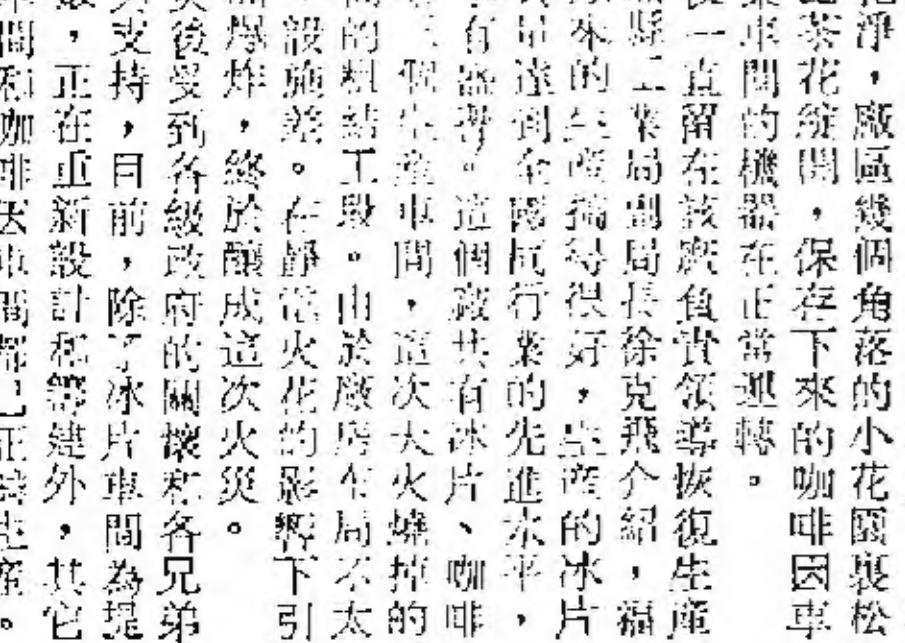 淨，廠區幾個角落的小花園裏松
茶花綻開，保存下來的咖啡因車
車間的機器在正常運轉。
一直留在該廠負責領導恢復生產
縣工業局副局長徐克飛介紹，福
來的生產搞得很好，生產的冰片
量達到全國同行業的先進水平，
有盛譽。這個廠共有冰片、咖啡
三個生產車間，這次大火燒掉的
的粗結工段。由於廠房布局不太
設施差。在靜電火花的影響下引
爆炸，終於釀成這次火災。
後受到各級政府的關懷和各兄弟
支持，目前，除了冰片車間為提
，正在重新設計和籌建外，其它
間和咖啡因車間都已正常生產。